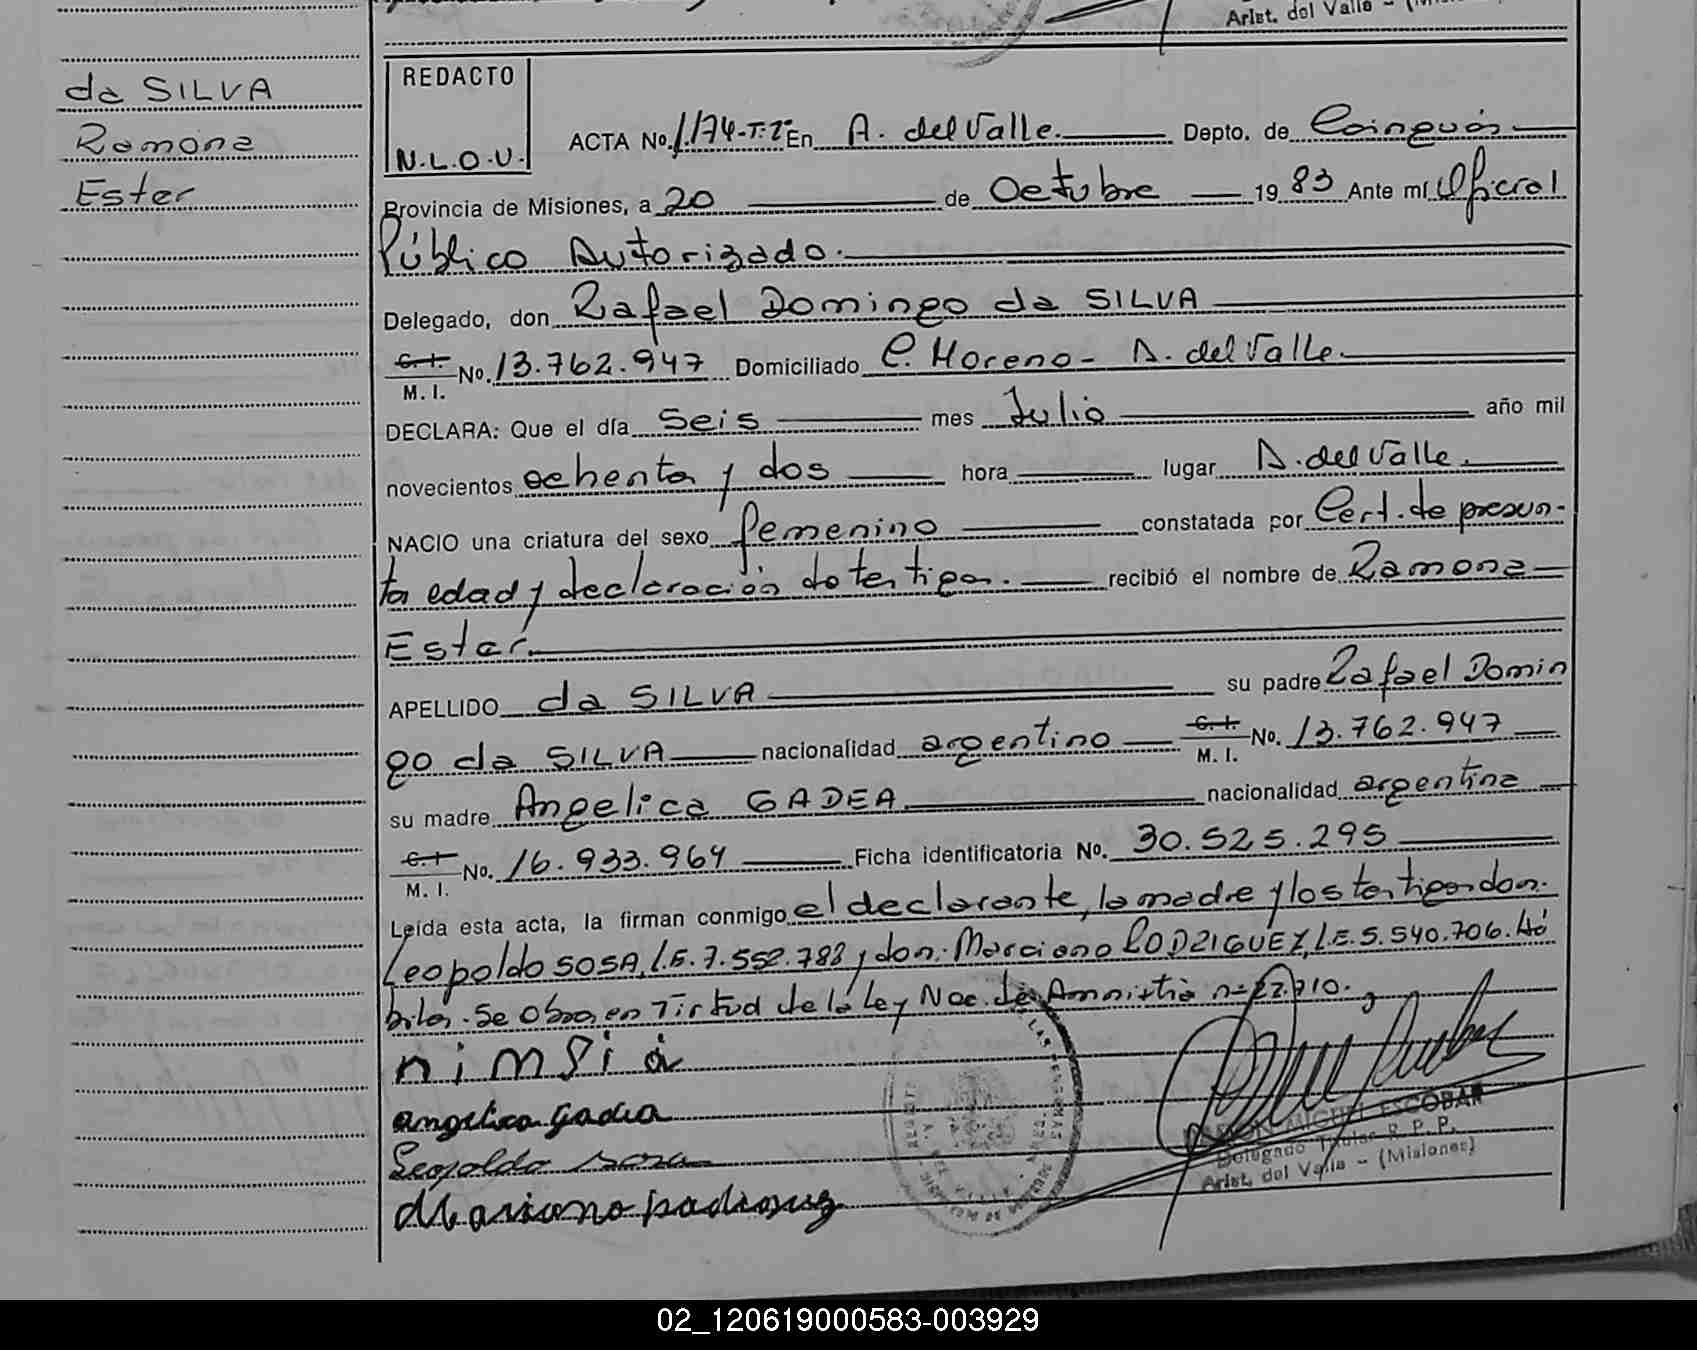 Arist. del Valle - (Mi
da SILVA
Ramona
Ester
REDACTO
N.L.O.V.
ACTA No. 1.174-T:2º En A. del Valle. Depto. de Cainguás
Provincia de Misiones, a 20 de Octubre 19 83 Ante mí Oficial
Público Autorizado.
Delegado, don Rafael Domingo da SILVA
C. I.
M. I. No. 13.762.947 Domiciliado C. Moreno - A. del Valle.
DECLARA: Que el día seis mes Julio año mil
novecientos ochenta y dos hora lugar A. del Valle.
NACIO una criatura del sexo femenino constatada por Cert. de presun-
ta edad y declaración de testigos. recibió el nombre de Ramona
Ester.
APELLIDO da SILVA su padre Rafael Domin
go da SILVA nacionalidad argentino C. I.
M. I. No. 13.762.947
su madre Angelica GADEA nacionalidad argentina
C. I.
M. I. No. 16.933.964 Ficha identificatoria No. 30.525.295
Leída esta acta, la firman conmigo el declarante, la madre y los testigos don.
Leopoldo SOSA, L.E. 7.552.788 y don. Marciano RODRIGUEZ, L.E. 5.540.706. Há
biles. Se obra en Virtud de la Ley Nac. de Amnistía nº 22.710.
angelica gadea
Leopoldo sosa
MIGUEL ESCOBAR
Delegado Titular R. P. P.
Arist. del Valle - (Misiones)
02_120619000583-003929